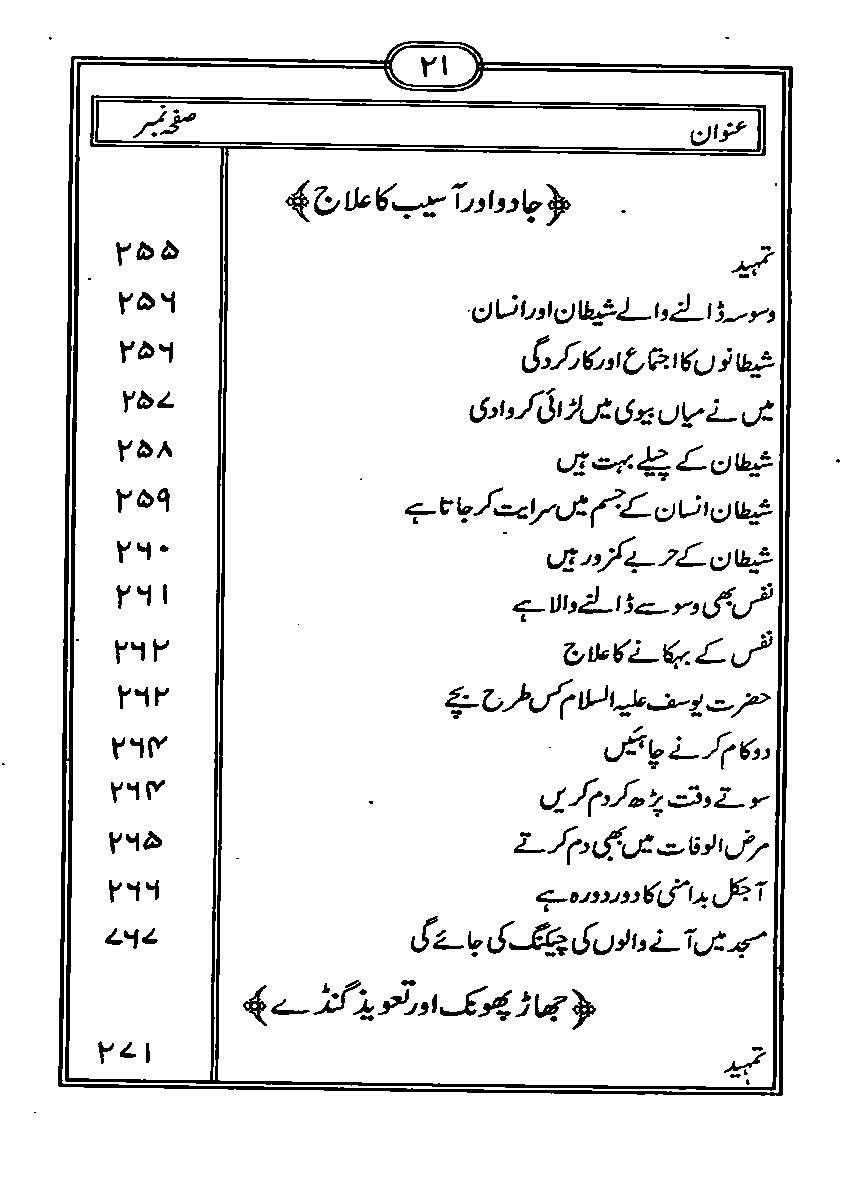 ۲۱
عنوان صفحہ نمبر
﴿جادو اور آسیب کا علاج﴾
تمہید ۲۵۵
وسوسہ ڈالنے والے شیطان اور انسان ۲۵۶
شیطانوں کا اجتماع اور کارکردگی ۲۵۶
میں نے میاں بیوی میں لڑائی کروادی ۲۵۷
شیطان کے حیلے بہت ہیں ۲۵۸
شیطان انسان کے جسم میں سرایت کر جاتا ہے ۲۵۹
شیطان کے حربے کمزور ہیں ۲۶۰
نفس بھی وسوسے ڈالنے والا ہے ۲۶۱
نفس کے بہکانے کا علاج ۲۶۲
حضرت یوسف علیہ السلام کس طرح بچے ۲۶۲
دو کام کرنے چاہئیں ۲۶۴
سوتے وقت پڑھ کر دم کریں ۲۶۴
مرض الوفات میں بھی دم کرتے ۲۶۵
آجکل بدامنی کا دور دورہ ہے ۲۶۶
مسجد میں آنے والوں کی چیکنگ کی جائے گی ۷۶۷
﴿جھاڑ پھونک اور تعویذ گنڈے﴾
تمہید ۲۷۱